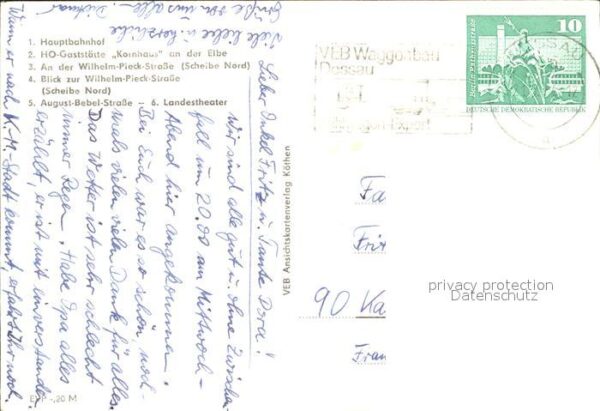 1. Hauptbahnhof
2. HO-Gaststätte „Kornhaus" an der Elbe
3. An der Wilhelm-Pieck-Straße (Scheibe Nord)
4. Blick zur Wilhelm-Pieck-Straße
(Scheibe Nord)
5. August-Bebel-Straße – 6. Landestheater
EVP -,20 M
VEB Ansichtskartenverlag Köthen
VEB Waggonbau
Dessau
10
DEUTSCHE DEMOKRATISCHE REPUBLIK
Lieber Onkel Fritz u. Tante Dora!
Wir sind alle gut u. ohne Zwischen-
fall um 20.00 am Mittwoch-
Abend hier angekommen.
Bei Euch war es so schön, noch-
mals vielen vielen Dank für alles.
Das Wetter ist sehr schlecht
immer Regen. Habe Opa alles
erzählt, er ist mit einverstanden
Wenn er nach K.-M.-Stadt kommt, erfahrt Ihr noch.
Viele liebe u. herzliche
Grüße von uns allen. Dietmar
Fa
Frit
90 Ka
Fran
privacy protection
Datenschutz